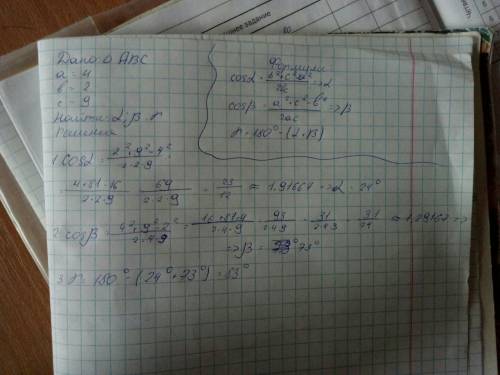 задание
80
Дано: Δ ABC
a = 4
b = 2
c = 9
Найти: α, β, γ
Решение
Формулы
cosα = b²+c²-a² / 2bc => α
cosβ = a²+c²-b² / 2ac => β
γ = 180° - (α+β)
1. cosα = 2²+9²-4² / 2·2·9 =
4+81-16 / 2·2·9 = 69 / 2·2·9 = 23 / 12 ≈ 1.91667 => α = 24°
2. cosβ = 4²+9²-2² / 2·4·9 = 16+81-4 / 2·4·9 = 93 / 2·4·9 = 31 / 2·4·3 = 31 / 24 ≈ 1.29167 =>
=> β = 73°
3. γ = 180° - (24°+73°) = 83°